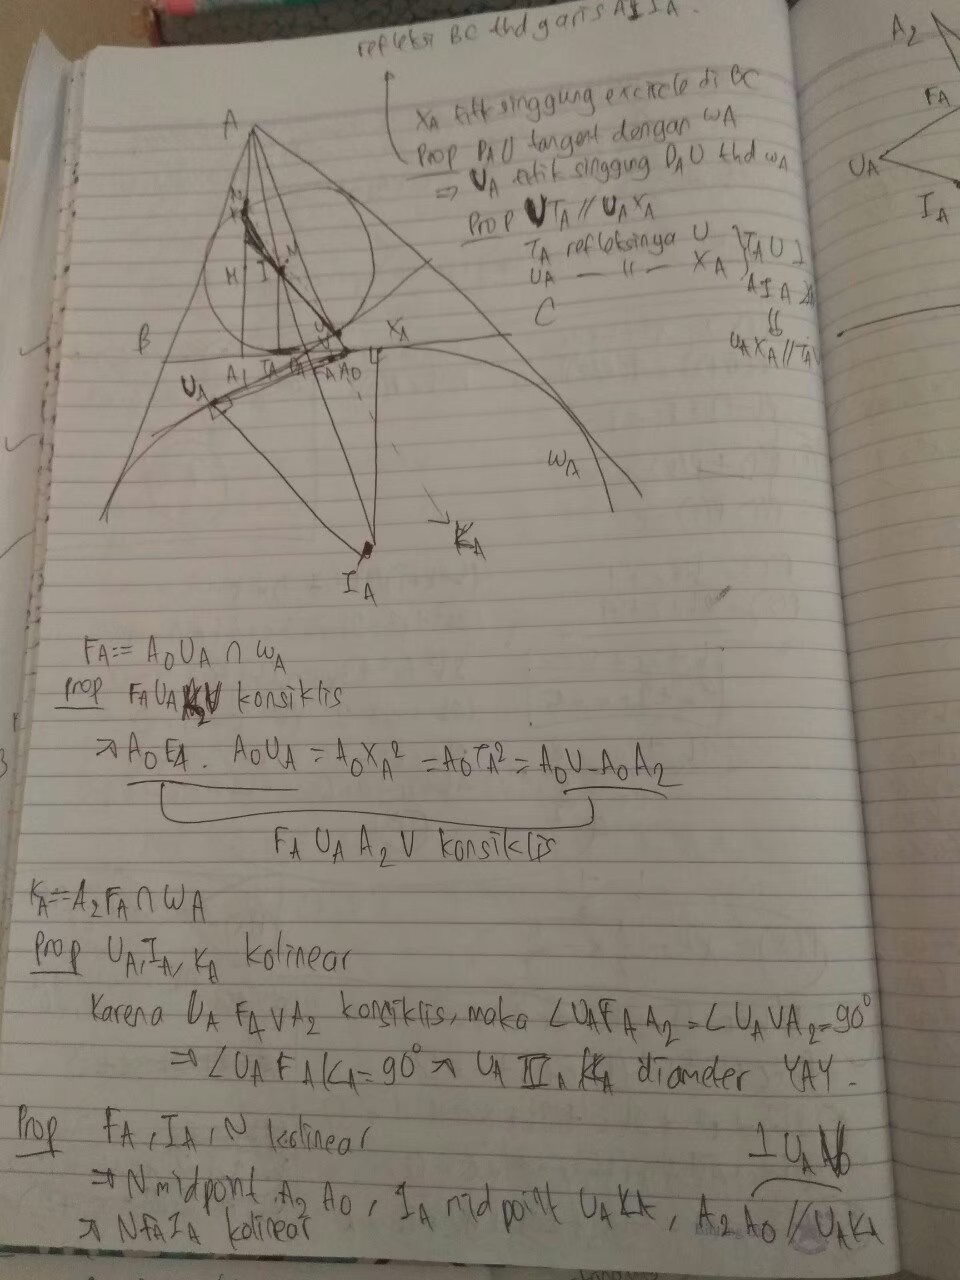 refleksi BC thd garis AIIA.
XA titik singgung excircle di BC
Prop DAU tangent dengan ωA
⇒ UA titik singgung DAU thd ωA
Prop VTA // UAXA
TA refleksinya U
UA — " — XA
TAU ⊥
AIA
⇓
UAXA//TA
A
M
I
H
B
C
XA
UA
A1 TA FA A0 U
ωA
KA
IA
A2
FA
UA
IA
FA:= A0UA ∩ ωA
Prop FAUAA2V konsiklis
⇒ A0FA. A0UA = A0XA² = A0TA² = A0V.A0A2
FA UA A2 V konsiklis
KA:=A2FA∩ωA
Prop UA,IA,KA kolinear
Karena UA FA V A2 konsiklis, maka ∠UAFAA2=∠UAVA2=90°
⇒ ∠UAFAKA=90° ⇒ UA IA KA diameter YAY.
Prop FA, IA, N kolinear
⊥UA
⇒ N midpoint A2A0, IA midpoint UAKA, A2A0//UAKA
⇒ NFAIA kolinear